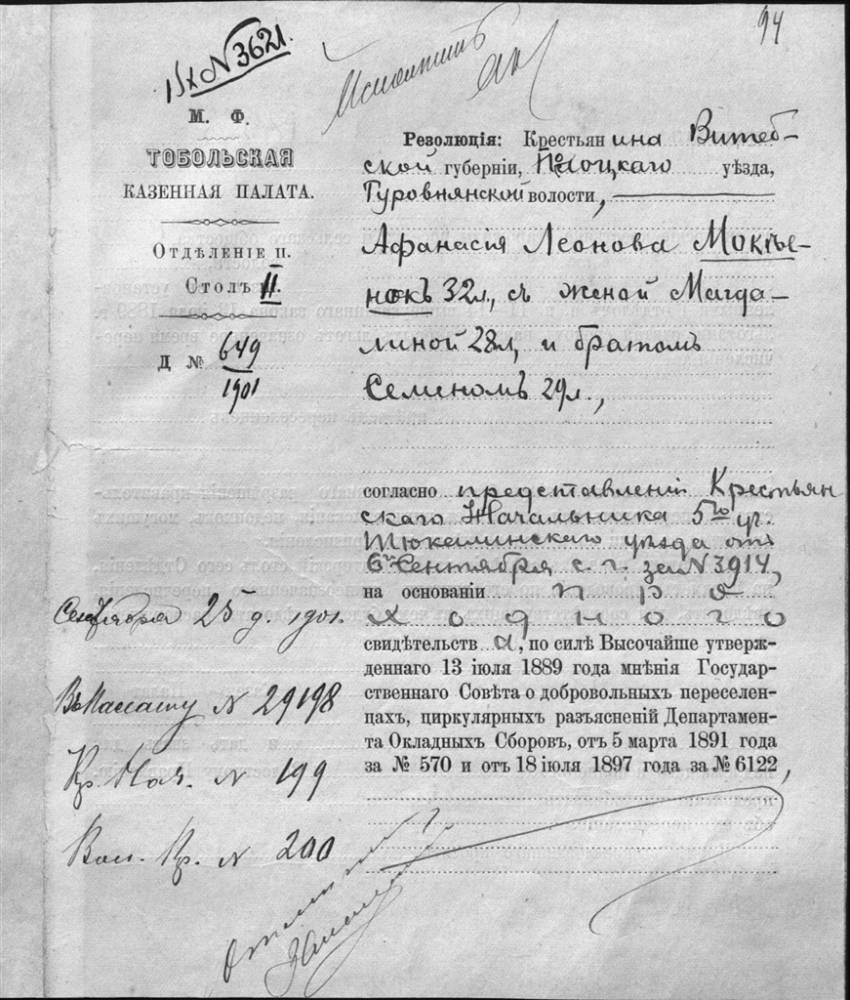 94
IX № 3621.
Исполнить
М. Ф.
ТОБОЛЬСКАЯ
КАЗЕННАЯ ПАЛАТА.
Отдѣленіе II.
Столъ II.
Д № 649
1901
Сентября 25 д. 1901.
Въ Палату № 29198
Кр. Нач. № 199
Вол. Пр. № 200
Резолюція: Крестьянина Витеб-
ской губерніи, Полоцкаго уѣзда,
Туровнянской волости,
Афанасія Леонова Мокѣе-
нокъ 32л., съ женой Магда-
линой 28л, и братомъ
Семеномъ 29л.,
согласно представленій Крестьян
скаго Начальника 5го уч.
Тюкалинскаго уѣзда отъ
6 Сентября с. г. за № 3914,
на основаніи про
ходного
свидѣтельства, по силѣ Высочайше утверж-
деннаго 13 іюля 1889 года мнѣнія Государ-
ственнаго Совѣта о добровольныхъ переселен-
цахъ, циркулярныхъ разъясненій Департамен-
та Окладныхъ Сборовъ, отъ 5 марта 1891 года
за № 570 и отъ 18 іюля 1897 года за № 6122,